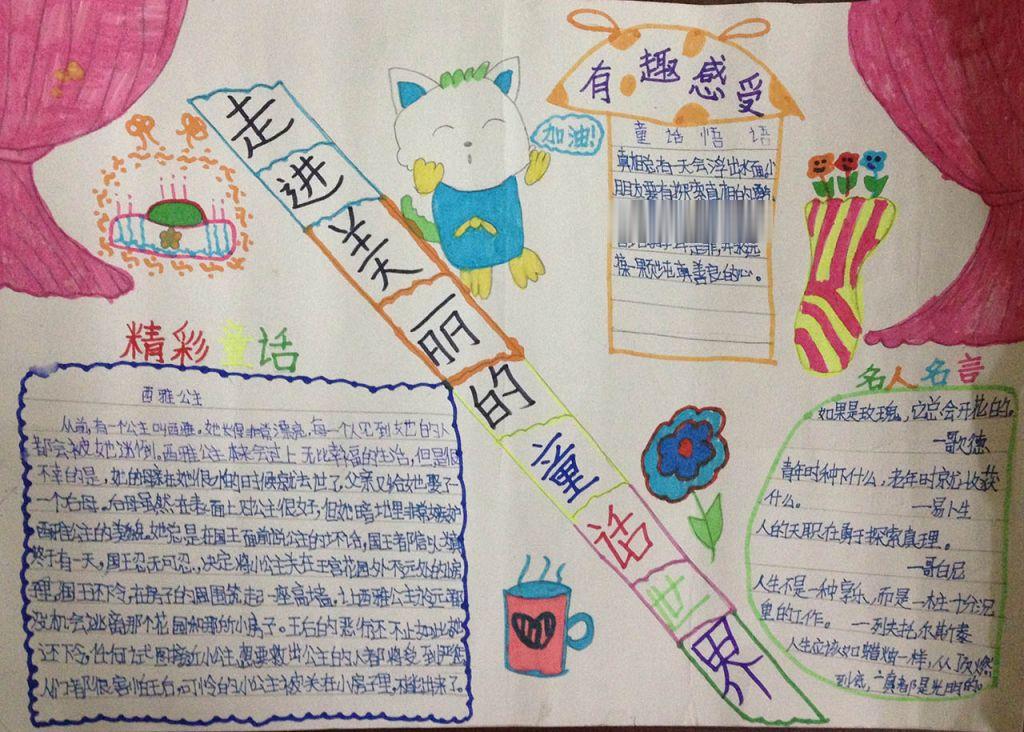 走进美丽的童话世界
加油!
有趣感受
童话悟语
真相总有一天会浮出水面,小
朋友要有探索真相的勇气,
葆一颗纯真善良的心。
精彩童话
西雅公主
从前,有一个公主叫西雅。她长得非常漂亮,每一个人见到她的人
都会被她迷倒。西雅公主本来会过上无比幸福的生活,但是很
不幸的是,她的母亲在她很小的时候就去世了,父亲又给她娶了
一个后母。后母虽然在表面上对公主很好,但她暗地里非常嫉妒
西雅公主的美貌。她总是在国王面前说公主的坏话,国王都信以为真
终于有一天,国王忍无可忍,决定将小公主关在王宫花园外不远处的小房
里,国王还下令,在房子的周围筑起一座高墙,让西雅公主永远都
没机会逃离那个花园和那所小房子。王后的恶行还不止如此,她
还下令,任何试图接近小公主,想要救出公主的人都将受到严惩
人们都很害怕王后,可怜的小公主被关在小房子里,
名人名言
如果是玫瑰,它总会开花的。
—歌德
青年时种下什么,老年时就收获
什么。 —易卜生
人的天职在勇于探索真理。
—哥白尼
人生不是一种享乐,而是一桩十分沉
重的工作。 —列夫托尔斯泰
人生应该如蜡烛一样,从顶燃
到底,一直都是光明的。